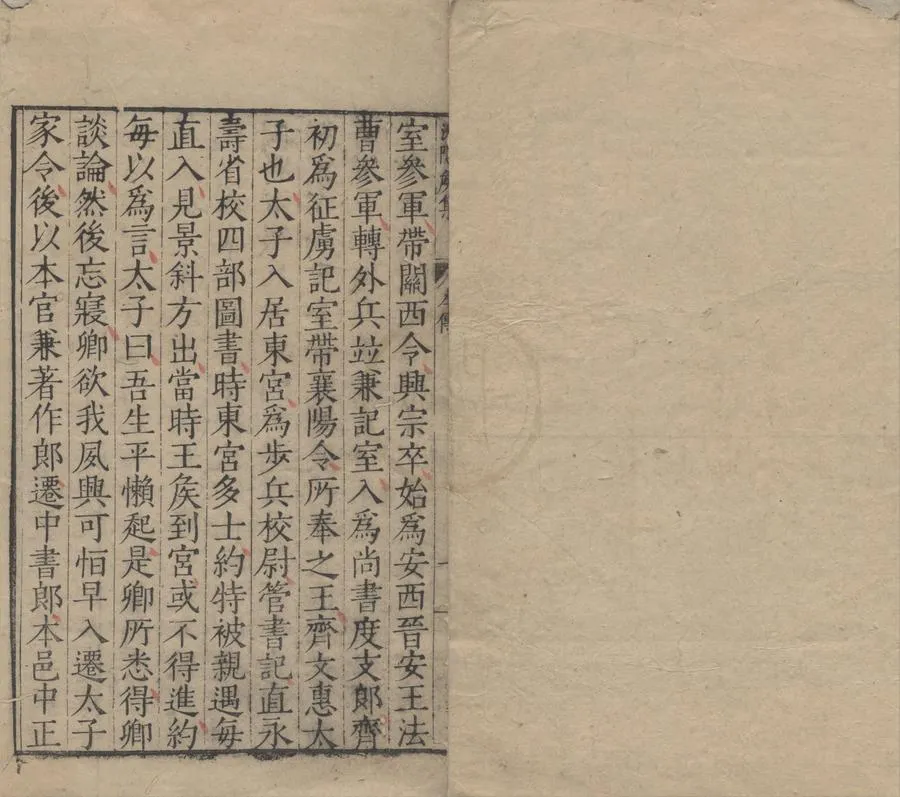 室參軍帶關西令興宗卒始爲安西晉安王法
曹參軍轉外兵竝兼記室入爲尚書度支郎齊
初爲征虜記室帶襄陽令所奉之王齊文惠太
子也太子入居東宮爲步兵校尉管書記直永
壽省校四部圖書時東宮多士約特被親遇每
直入見景斜方出當時王矦到宮或不得進約
每以爲言太子曰吾生平懶起是卿所悉得卿
談論然後忘寢卿欲我夙興可怕早入遷太子
家令後以本官兼著作郎遷中書郎本邑中正